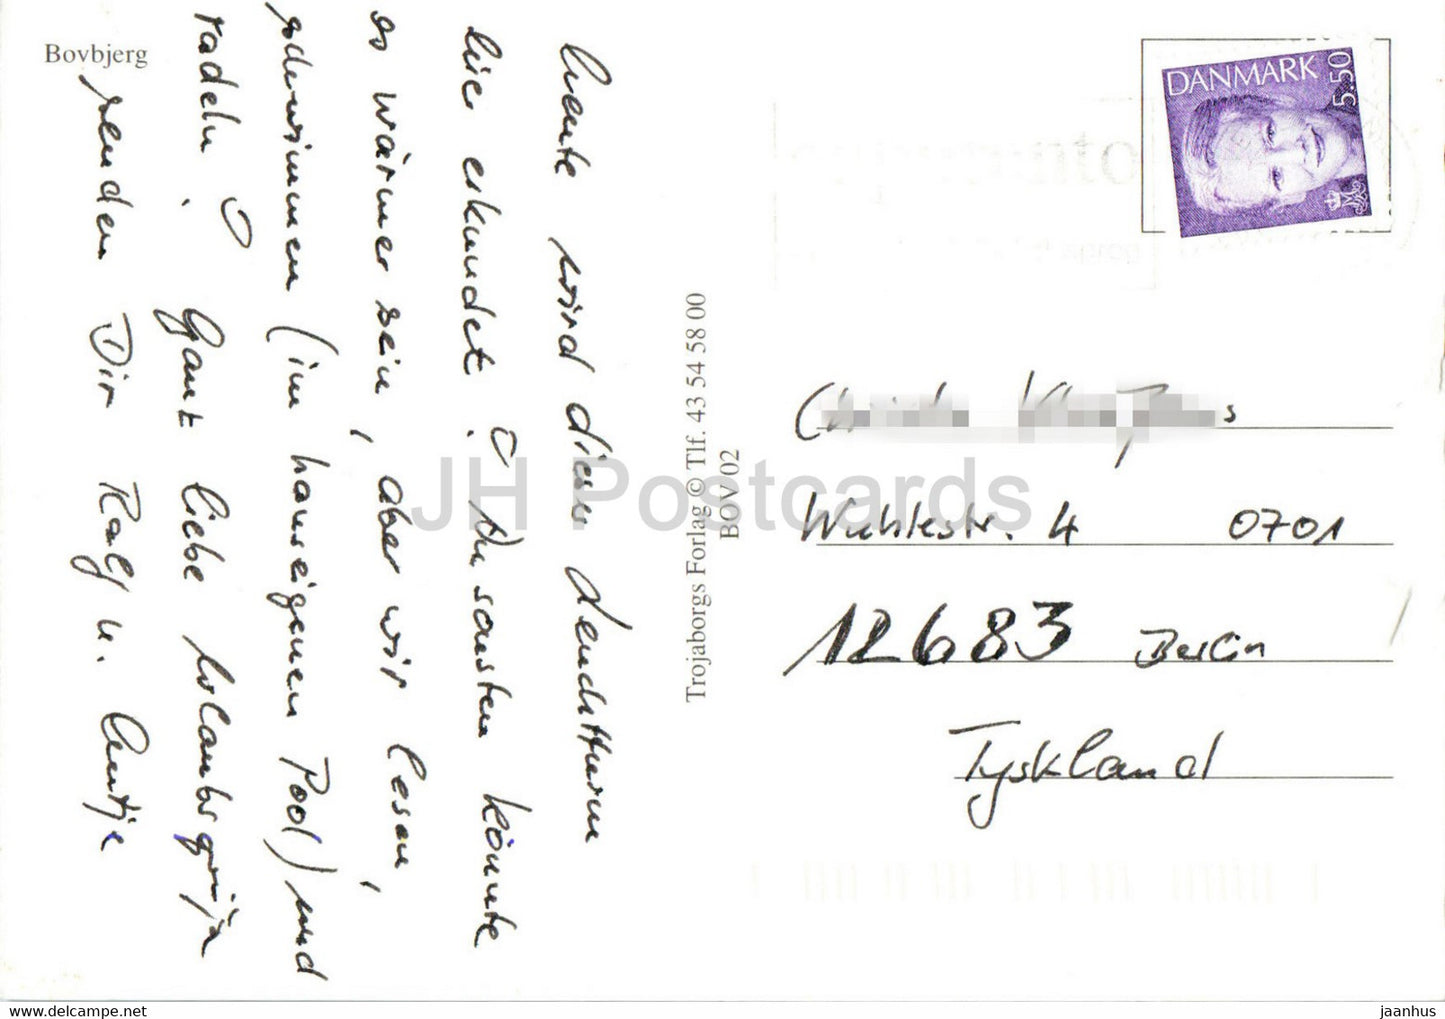 Bovbjerg
DANMARK
5.50
heute wird dieser Leuchtturm
hier erkundet. Ansonsten könnte
es wärmer sein, aber wir lesen,
schwimmen (im hauseigenen Pool) und
radeln. Ganz liebe Urlaubsgrüße
senden Dir Ralf u. Antje
Trojaborgs Forlag © Tlf. 43 54 58 00
BOV 02
Wuhlestr. 4 0701
12683 Berlin
Tyskland
JH Postcards
www.delcampe.net
jaanhus